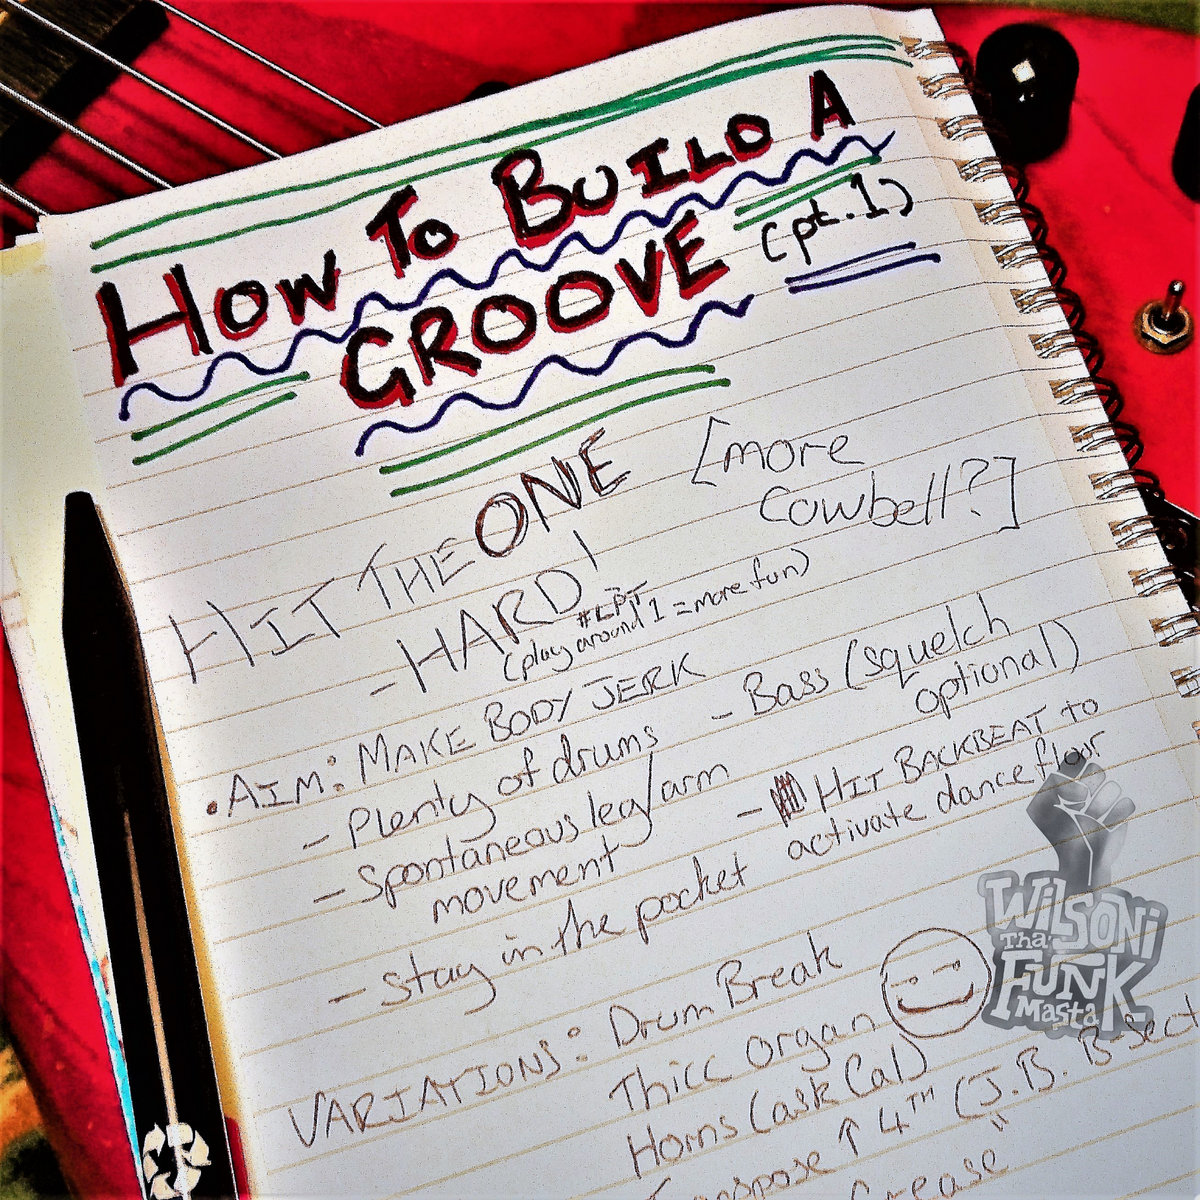 HOW TO BUILD A
GROOVE (pt.1)
HIT THE ONE [more
cowbell?]
- HARD!
#LPT
(play around 1 = more fun)
• AIM: MAKE BODY JERK
- Plenty of drums
- Bass (squelch
optional)
- spontaneous leg/arm
movement
- HIT BACKBEAT to
activate dance floor
- stay in the pocket
VARIATIONS: Drum Break
Thicc organ
Horns (ask Cal)
Transpose ↑ 4TH (J.B. B-Sect
Grease"
WILSONi
Tha
FUNK
Masta